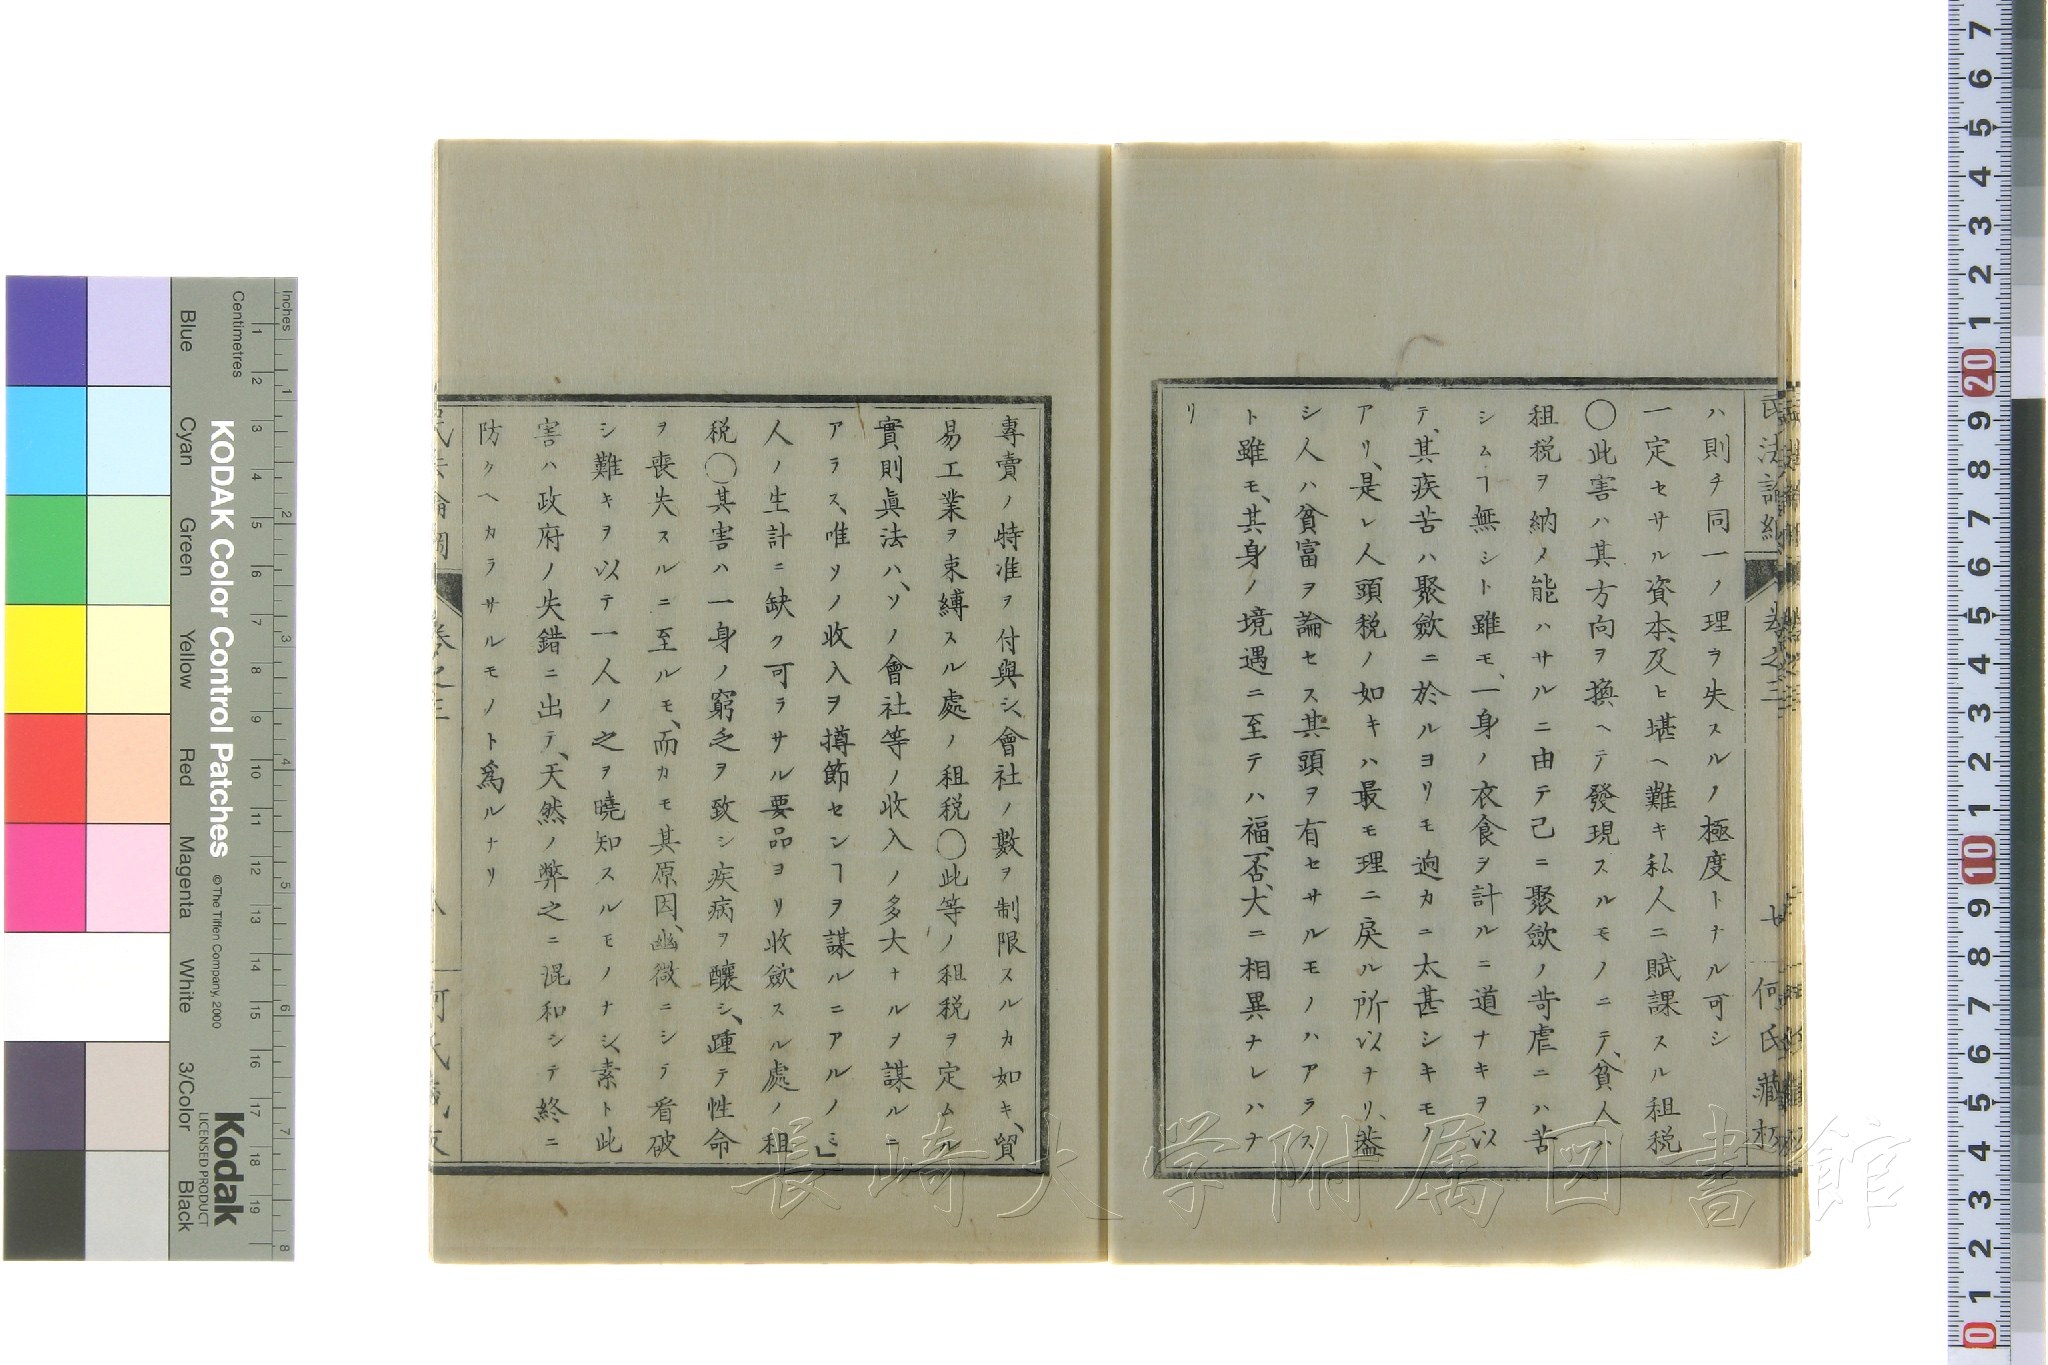 ハ則チ同一ノ理ヲ失スルノ極度トナル可シ
一定セサル資本、及ヒ堪ヘ難キ私人ニ賦課スル租税
〇此害ハ其方向ヲ換ヘテ發現スルモノニテ、貧人ハ
租税ヲ納メ能ハサルニ由テ己ニ聚歛ノ苛虐ニハ苦
シムヿ無シト雖モ、一身ノ衣食ヲ計ルニ道ナキヲ以
テ、其疾苦ハ聚歛ニ於ルヨリモ逈カニ太甚シキモノ
アリ、是レ人頭税ノ如キハ最モ理ニ戻ル所以ナリ、蓋
シ人ハ貧富ヲ論セス其頭ヲ有セサルモノハアラス
ト雖モ、其身ノ境遇ニ至テハ福、否、大ニ相異ナレハナ
リ
民法論綱 卷之三 廿 何氏藏板
專賣ノ特准ヲ付與シ、會社ノ數ヲ制限スルカ如キ、貿
易工業ヲ束縛スル處ノ租税〇此等ノ租税ヲ定ムル
實則眞法ハ、ソノ會社等ノ收入ノ多大ナルヲ謀ルニ
アラス、唯ソノ收入ヲ撙節センヿヲ謀ルニアルノミ」
人ノ生計ニ缺ク可ラサル要品ヨリ收歛スル處ノ租
税〇其害ハ一身ノ窮乏ヲ致シ疾病ヲ釀シ、踵テ性命
ヲ喪失スルニ至ルモ、而カモ其原因、幽微ニシテ看破
シ難キヲ以テ一人ノ之ヲ曉知スルモノナシ、素ト此
害ハ政府ノ失錯ニ出テ、天然ノ弊之ニ混和シテ終ニ
防クヘカラサルモノト爲ルナリ
長崎大学附属図書館
KODAK Color Control Patches
©The Tiffen Company, 2000
Kodak
LICENSED PRODUCT
Inches
Centimetres
Blue
Cyan
Green
Yellow
Red
Magenta
White
3/Color
Black